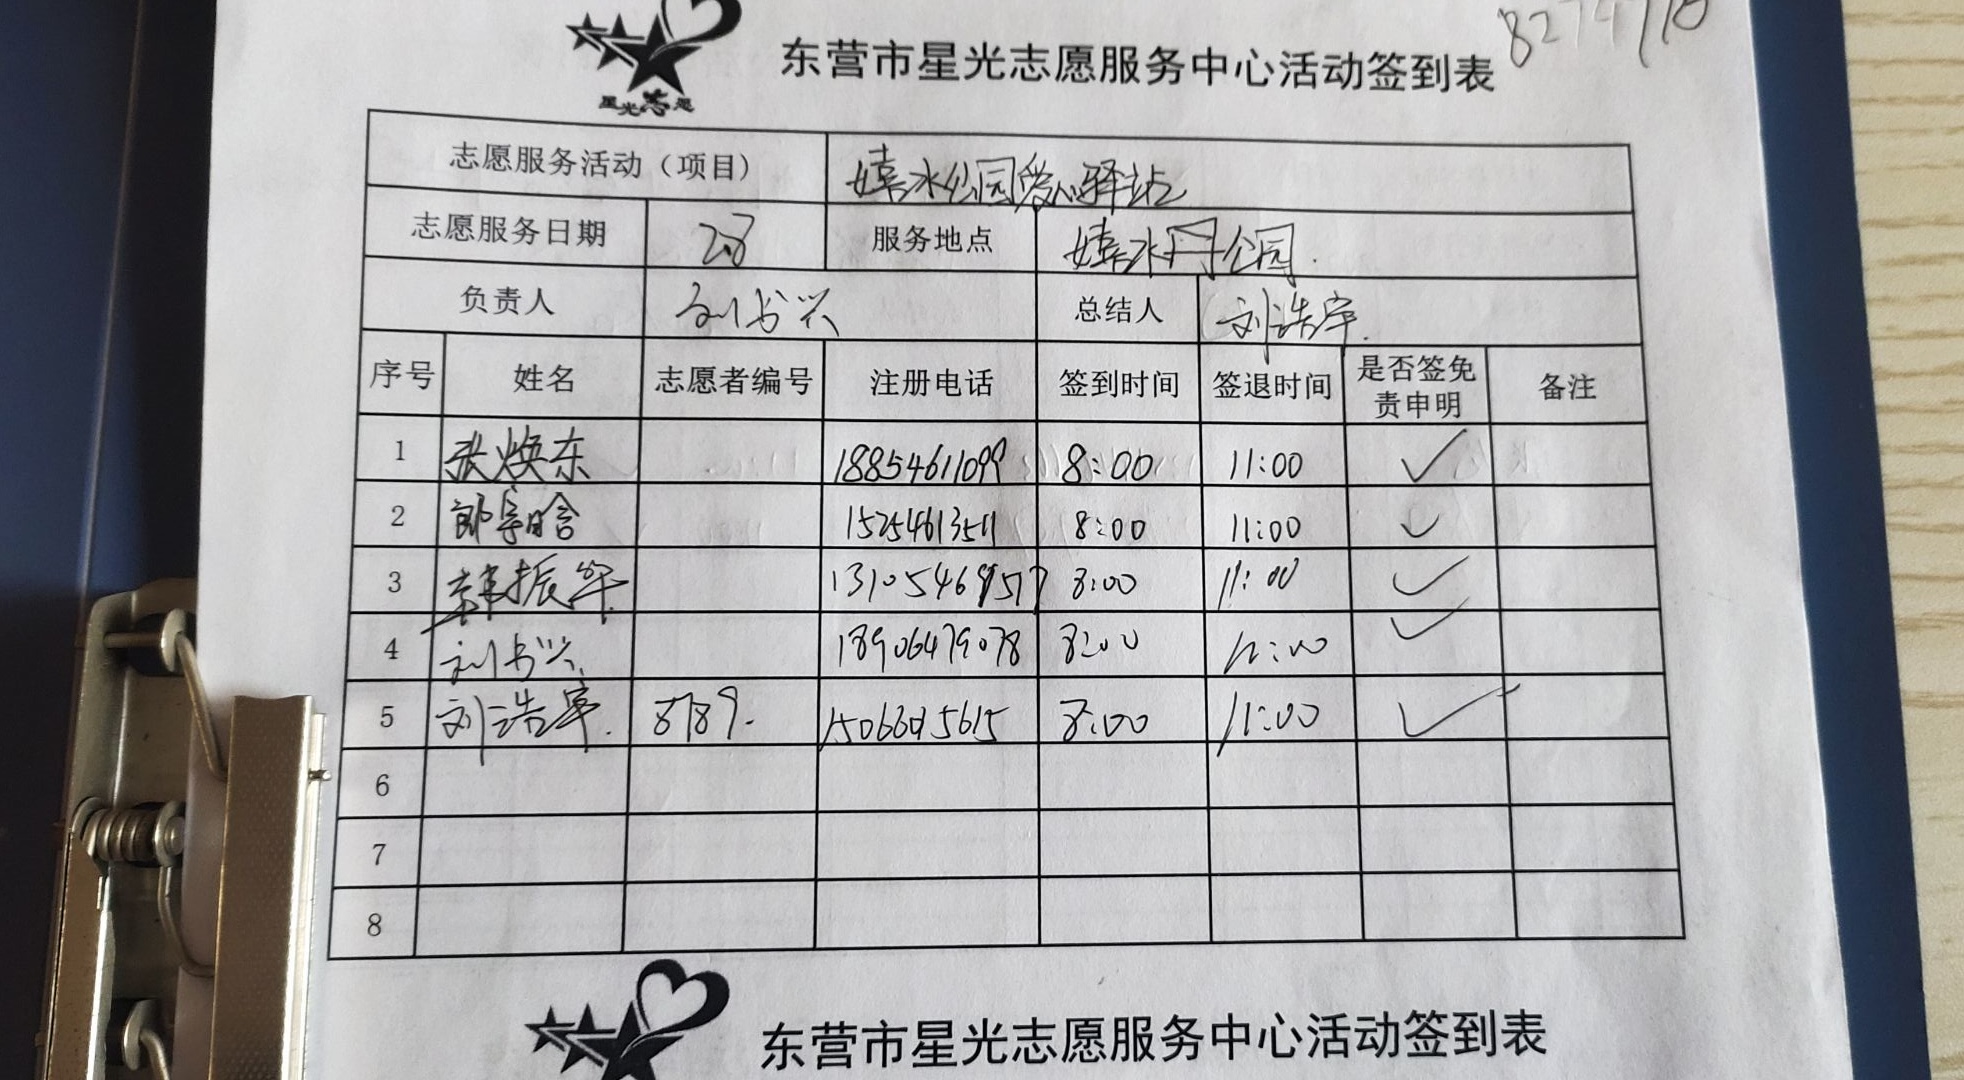 星光志愿
东营市星光志愿服务中心活动签到表
志愿服务活动（项目） 嬉水公园爱心驿站
志愿服务日期 2.8 服务地点 嬉水公园
负责人 刘书兴 总结人 刘浩宇
序号 姓名 志愿者编号 注册电话 签到时间 签退时间 是否签免责申明 备注
1 张焕东 18854611099 8:00 11:00 ✓
2 郎宇晗 15254613511 8:00 11:00 ✓
3 韩振华 8:00 11:00 ✓
4 刘书兴 18906479078 8:00 11:00 ✓
5 刘浩宇 8789 8:00 11:00 ✓
6
7
8
东营市星光志愿服务中心活动签到表